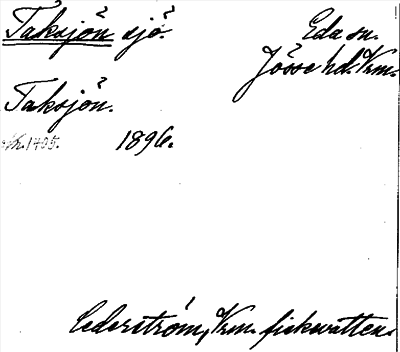 Taksjön sjö.
Eda sn.
Jösse hd. Vrm.
Taksjön.
Nr. 1405. 1896.
Cederström, Vrm. fiskevatten.